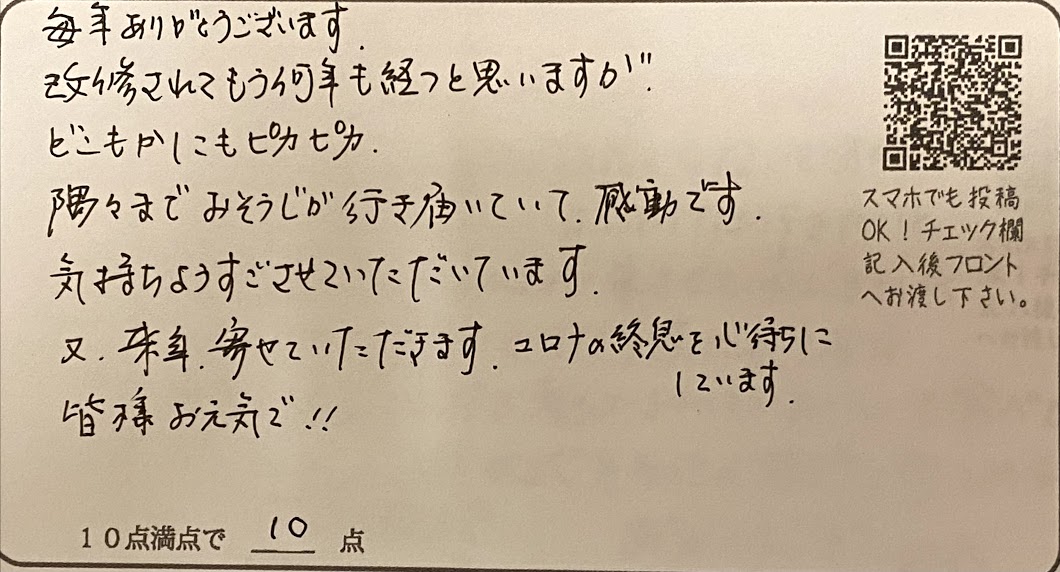 毎年ありがとうございます.
改修されてもう何年も経つと思いますが
どこもかしこもピカピカ.
隅々までおそうじが行き届いていて、感動です.
気持ちようすごさせていただいています.
又、来年、寄せていただきます. コロナの終息を心待ちに
しています.
皆様お元気で!!
10点満点で 10 点
スマホでも投稿
OK！チェック欄
記入後フロント
へお渡し下さい。